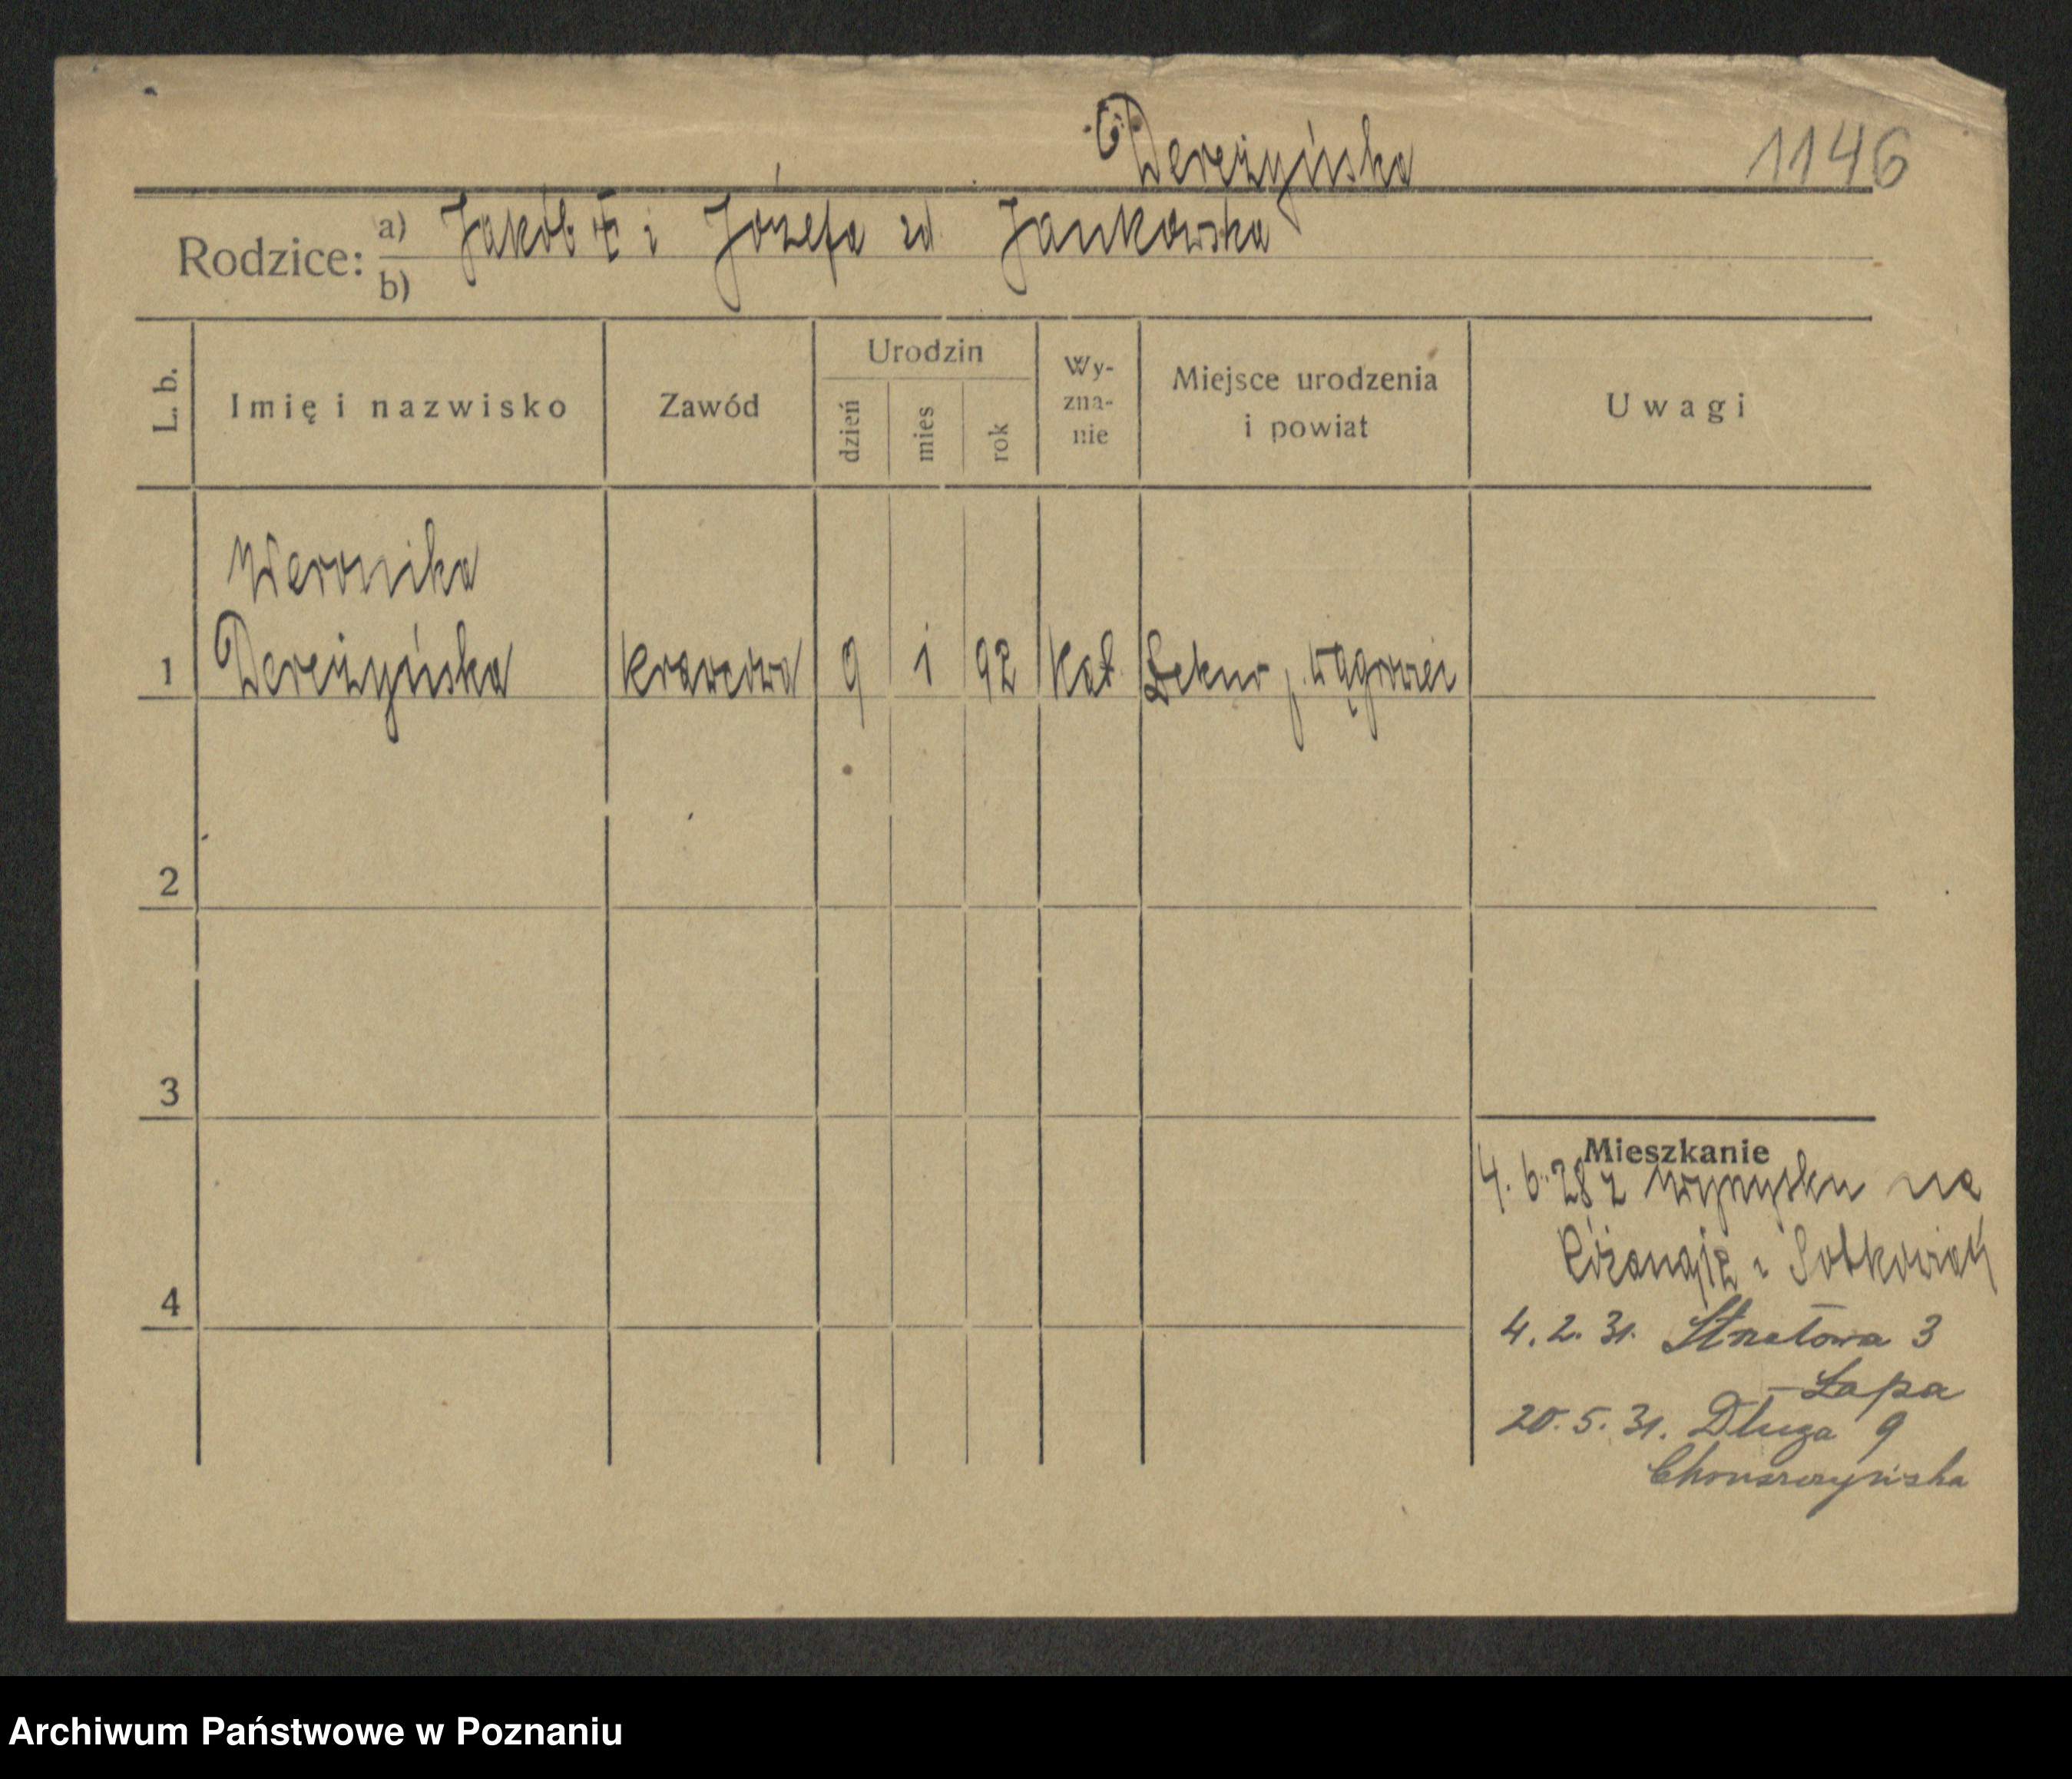 Dereżyńska
1146
Rodzice: a) Jakób i Józefa zd Jankowska
b)
L. b.
Imię i nazwisko
Zawód
Urodzin
dzień
mies
rok
Wy-
zna-
nie
Miejsce urodzenia
i powiat
Uwagi
Weronika
1 Dereżyńska krawcowa 9 1 92 kat Łekno p. Wągrowiec
2
3
4
Mieszkanie
4. 6. 28 z na
Różana i Sobkowiak
4. 2. 31. 3
- Łapa
20. 5. 31. Długa 9
Archiwum Państwowe w Poznaniu